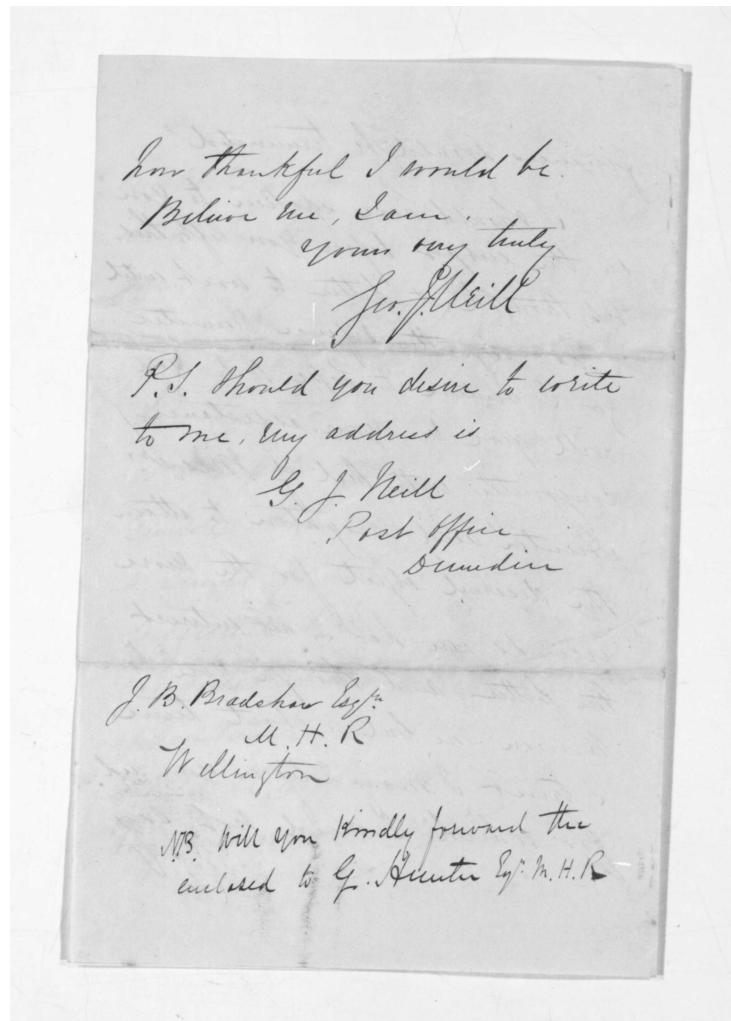 how thankful I would be.
Believe me, I am.
Yours very truly
Geo. J. Neill
P.S. Should you desire to write
to me, my address is
G. J. Neill
Post Office
Dunedin
J. B. Bradshaw Esqre
M. H. R
Wellington
N.B. Will you Kindly forward the
enclosed to G. Hunter Esqr M. H. R